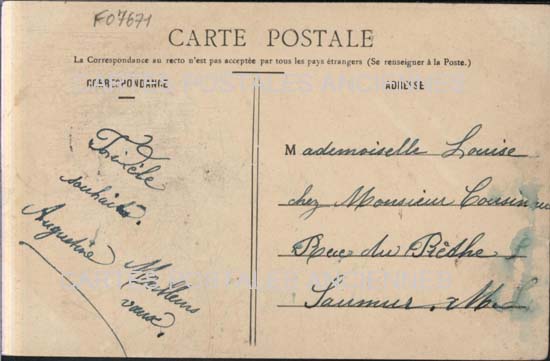 F07671
CARTE POSTALE
La Correspondance au recto n'est pas acceptée par tous les pays étrangers (Se renseigner à la Poste.)
CORRESPONDANCE
ADRESSE
CARTES POSTALES ANCIENNES
souhaite
Augustine
Meilleurs
vœux.
Mademoiselle Louise
chez Monsieur Cousin
Rue du
Saumur. M. L
CARTES POSTALES ANCIENNES